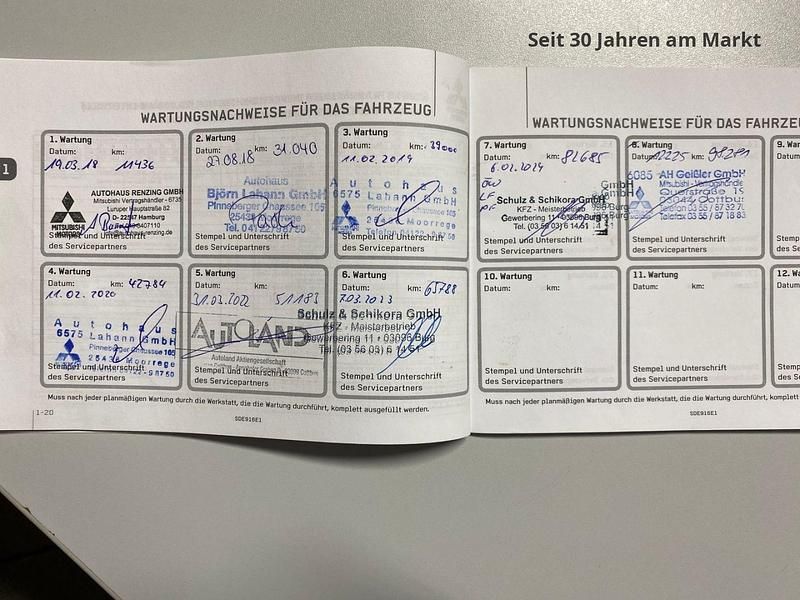 Seit 30 Jahren am Markt
WARTUNGSNACHWEISE FÜR DAS FAHRZEUG
1
1. Wartung
Datum: km:
19.03.18 11436
AUTOHAUS RENZING GMBH
Mitsubishi Vertragshändler - 6735
Luruper Hauptstraße 82
D- 22547 Hamburg
MITSUBISHI
MOTORS
Stempel und Unterschrift
des Servicepartners
2. Wartung
Datum: km:
27.08.18 31.040
Autohaus
Björn Lahann GmbH
Pinneberger Chaussee 165
25436 Moorrege
Tel. 04122-98750
Stempel und Unterschrift
des Servicepartners
3. Wartung
Datum: km:
11.02.2019 39000
Autohaus
6575 Lahann GmbH
Pinneberger Chaussee 165
Moorrege
Telefon 04122-98750
Stempel und Unterschrift
des Servicepartners
4. Wartung
Datum: km:
11.02.2020 42784
Autohaus
6575 Lahann GmbH
Pinneberger Chaussee 165
25436 Moorrege
Stempel und Unterschrift
des Servicepartners
5. Wartung
Datum: km:
31.03.2022 51183
AUTOLAND
Autoland Aktiengesellschaft
Stempel und Unterschrift
des Servicepartners
6. Wartung
Datum: km:
7.03.2023 65788
Schulz & Schikora GmbH
KFZ - Meisterbetrieb
Gewerbering 11 • 03096 Burg
Tel. (03 56 03) 6 14 51
Stempel und Unterschrift
des Servicepartners
Muss nach jeder planmäßigen Wartung durch die Werkstatt, die die Wartung durchführt, komplett ausgefüllt werden.
1-20
SDE916E1
WARTUNGSNACHWEISE FÜR DAS FAHRZE
7. Wartung
Datum: km:
6.02.2024 81685
Schulz & Schikora GmbH
KFZ - Meisterbetrieb
Gewerbering 11 • 03096 Burg
Tel. (03 56 03) 6 14 51
Stempel und Unterschrift
des Servicepartners
8. Wartung
Datum: km:
6085 AH Geißler GmbH
Mitsubishi-Vertragshändler
Querstraße 15
03042 Cottbus
Telefax 03 55 / 87 18 83
Stempel und Unterschrift
des Servicepartners
9. War
Datum:
Stempel
des Ser
10. Wartung
Datum: km:
Stempel und Unterschrift
des Servicepartners
11. Wartung
Datum: km:
Stempel und Unterschrift
des Servicepartners
12. W
Datum:
Stempel
des Ser
Muss nach jeder planmäßigen Wartung durch die Werkstatt, die die Wartung durchführt, komplett
SDE916E1